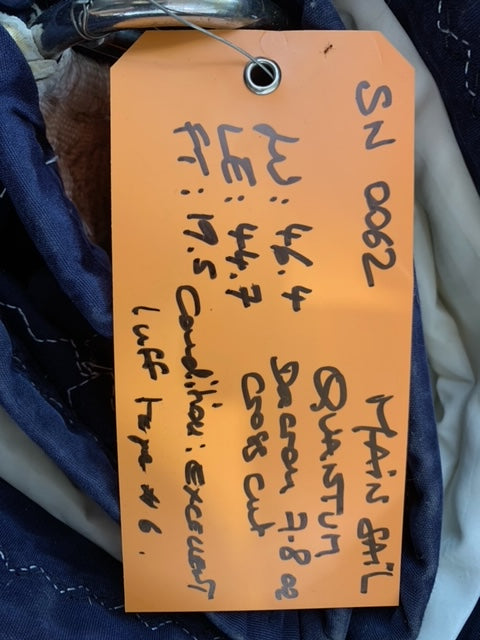 SN 0062 MAIN SAIL
QUANTUM
LU: 46.4 Dacron 7.8 oz
LE: 44.7 Cross Cut
FT: 19.5 Condition: EXCELLENT
Luff tape #6.